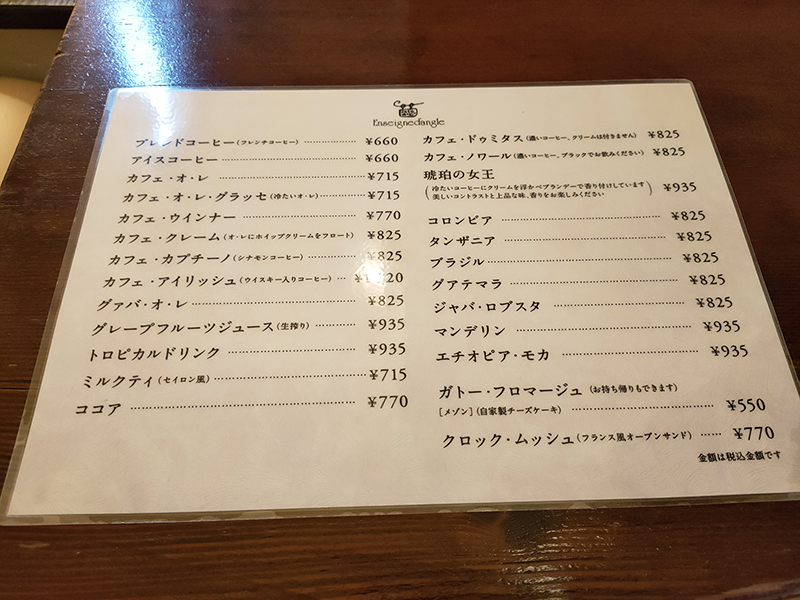 Enseignedangle
ブレンドコーヒー(フレンチコーヒー) ¥660
アイスコーヒー ¥660
カフェ・オ・レ ¥715
カフェ・オ・レ・グラッセ(冷たいオ・レ) ¥715
カフェ・ウインナー ¥770
カフェ・クレーム(オ・レにホイップクリームをフロート) ¥825
カフェ・カプチーノ(シナモンコーヒー) ¥825
カフェ・アイリッシュ(ウイスキー入りコーヒー)
グァバ・オ・レ ¥825
グレープフルーツジュース(生搾り) ¥935
トロピカルドリンク ¥935
ミルクティ(セイロン風) ¥715
ココア ¥770
カフェ・ドゥミタス(濃いコーヒー、クリームは付きません) ¥825
カフェ・ノワール(濃いコーヒー、ブラックでお飲みください) ¥825
琥珀の女王
(冷たいコーヒーにクリームを浮かべブランデーで香り付けしています
美しいコントラストと上品な味、香りをお楽しみください) ¥935
コロンビア ¥825
タンザニア ¥825
ブラジル ¥825
グアテマラ ¥825
ジャバ・ロブスタ ¥825
マンデリン ¥935
エチオピア・モカ ¥935
ガトー・フロマージュ (お持ち帰りもできます)
[メゾン](自家製チーズケーキ) ¥550
クロック・ムッシュ(フランス風オープンサンド) ¥770
金額は税込金額です